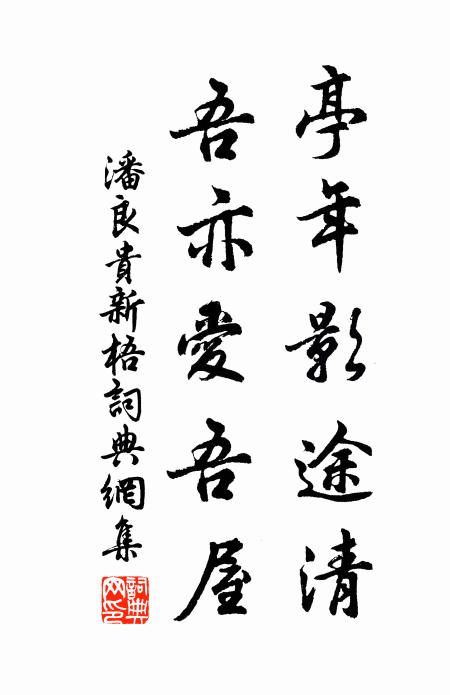 亭午影途清
吾亦愛吾屋
潘良貴新梧詞典網集
詞典網印